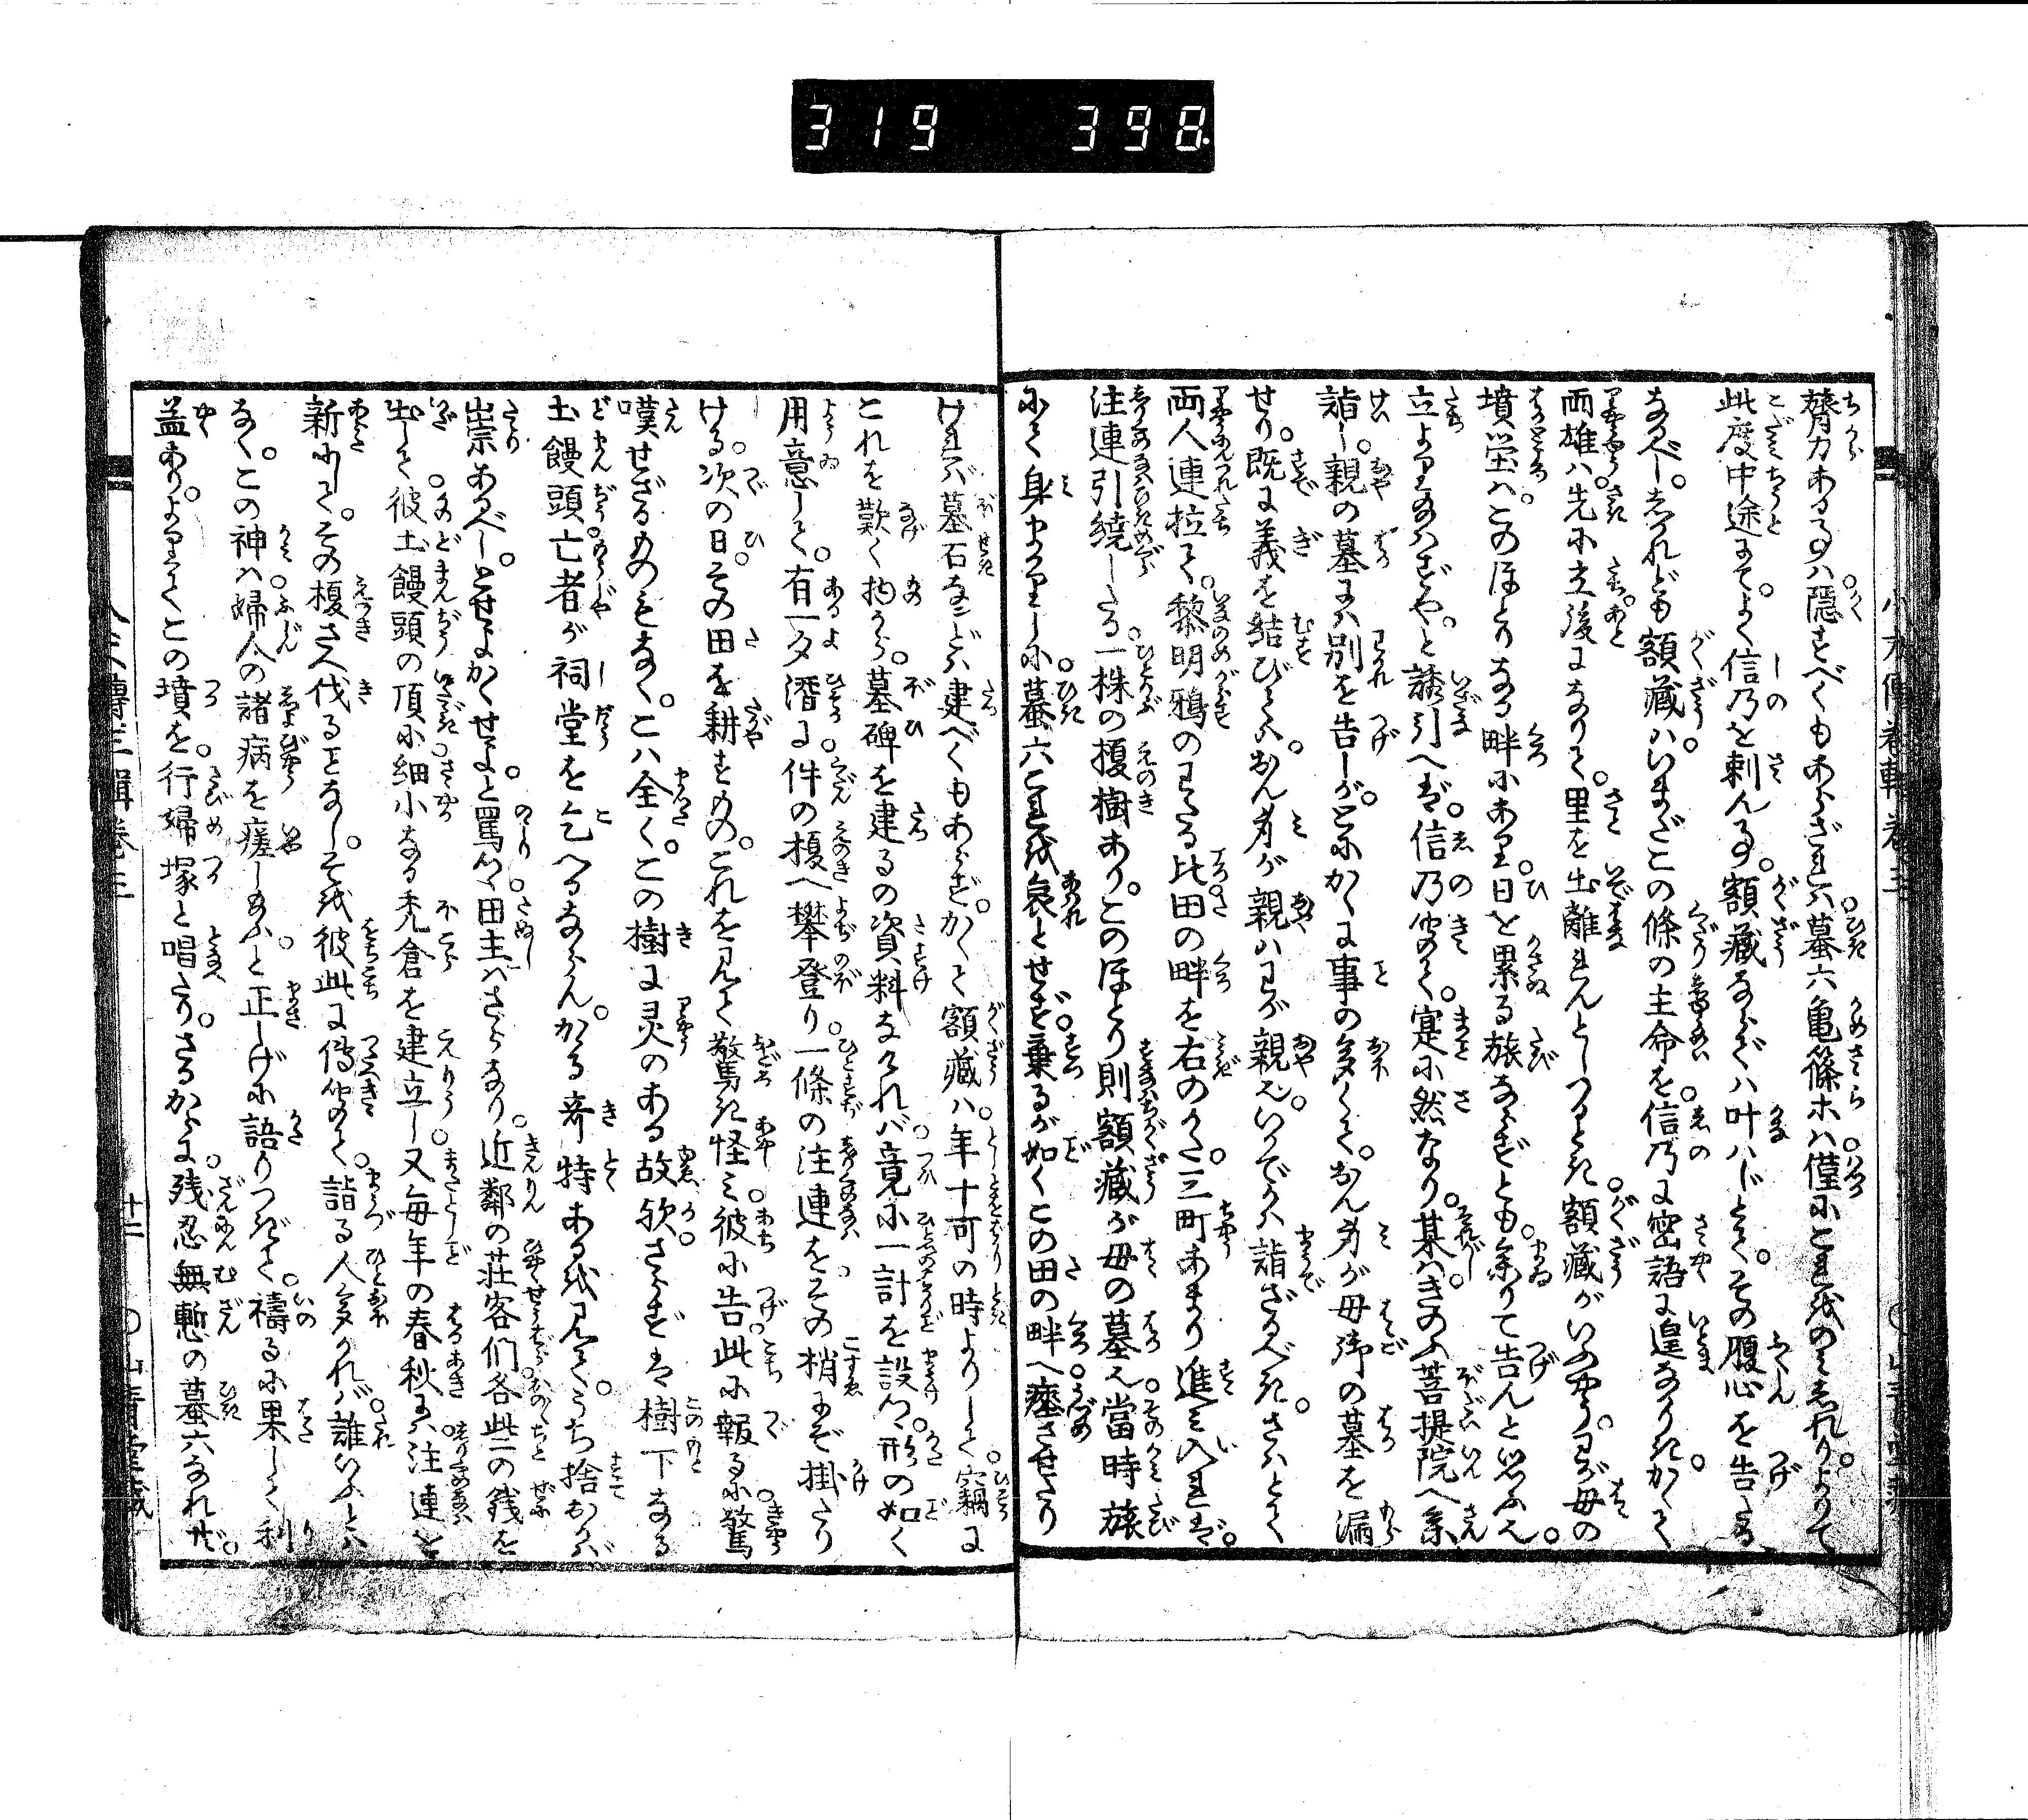 319 398
膂力ある事は隠すべくもあらざれば蟇六亀篠ホは僅にこれをのみしれりよりて
此度中途にてよく信乃を刺ん事額藏ならずは叶はじとてその腹心を告る
なるべししかれども額藏はいまだこの條の主命を信乃に密語に遑なかりきかくて
両雄は先に立後になりて里を出離れんとしつるとき額藏がいふやうわが母の
墳塋はこのほとりなる畔にあり日を累る旅ならずとも参りて告んと思ふ也
立よりたまはずやと誘引へば信乃聞て寔に然なり某はきのふ菩提院へ参
詣し親の墓には別を告しがとにかくに事の多くておん身が母御の墓を漏
せり既に義を結びてはおん身が親はわが親也いかでかは詣ざるべきさはとて
両人連拉て黎明鴉のわたる比田の畔を右のかた三町あまり進み入れば
注連引繞したる一株の榎樹ありこのほとり則額藏が母の墓也當時旅
にて身まかりしに蟇六これを哀とせず棄るが如くこの田の畔へ瘞させたり
ければ墓石などは建べくもあらずかくて額藏は年十可の時よりして竊に
これを歎く物から墓碑を建るの資料なければ竟に一計を設つ形の如く
用意して有一夕潛に件の榎へ攀登り一條の注連をその梢にぞ掛たり
ける次の日その田を耕すものこれを見て驚き怪み彼に告此に報るに驚
嘆せざるものもなくこは全くこの樹に灵のある故歟さらずは樹下なる
土饅頭亡者が祠堂を乞へるならんかゝる奇特あるを見てうち捨おかば
祟あるべしとせよかくせよと罵つ田主はさらなり近鄰の荘客们各些の銭を
出して彼土饅頭の頂に細小なる禿倉を建立し又毎年の春秋には注連を
新にしてその榎さへ伐ることなしそを彼此に傳聞て詣る人多かれば誰いふとは
なくこの神は婦人の諸病を瘥し給ふと正しげに語りつぎて禱るに果して利
益ありよりてこの墳を行婦塚と唱たりさるからに残忍無慙の蟇六なれど